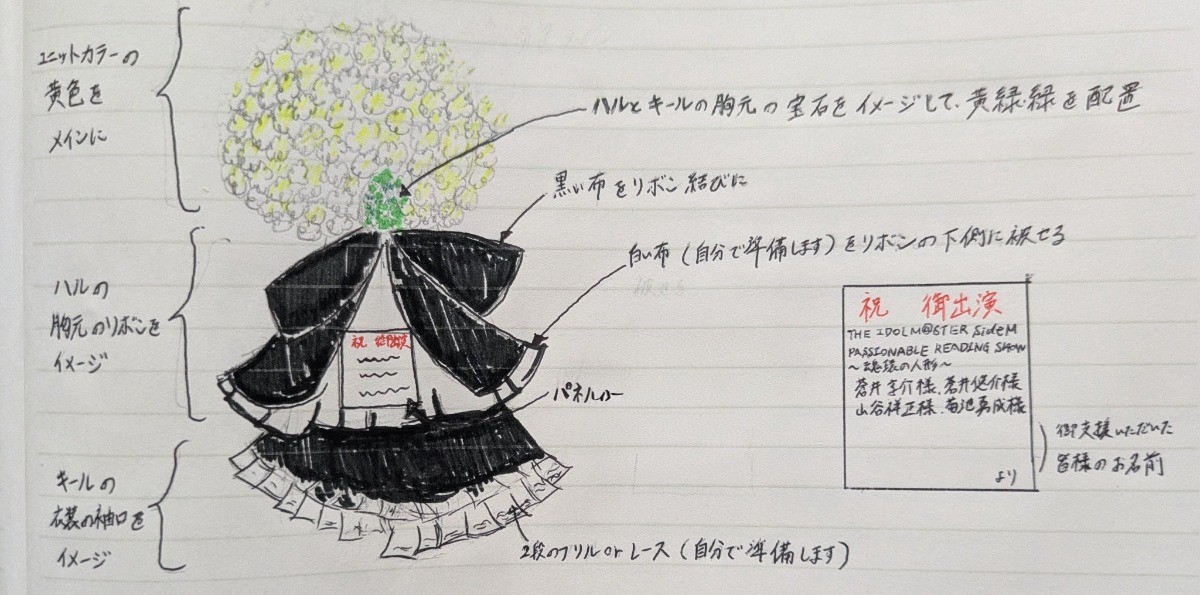 ユニットカラーの
黄色を
メインに
ハルとキールの胸元の宝石をイメージして、黄緑・緑を配置
黒い布をリボン結びに
白い布(自分で準備します)をリボンの下側に被せる
ハルの
胸元のリボンを
イメージ
祝 御出演
パネル
キールの
衣装の袖口を
イメージ
2段のフリル or レース(自分で準備します)
祝 御出演
THE IDOLM@STER SideM
PASSIONABLE READING SHOW
~魂銀の人形~
蒼井享介様、蒼井悠介様
山谷祥正様、菊池勇成様
より
御支援いただいた
皆様のお名前